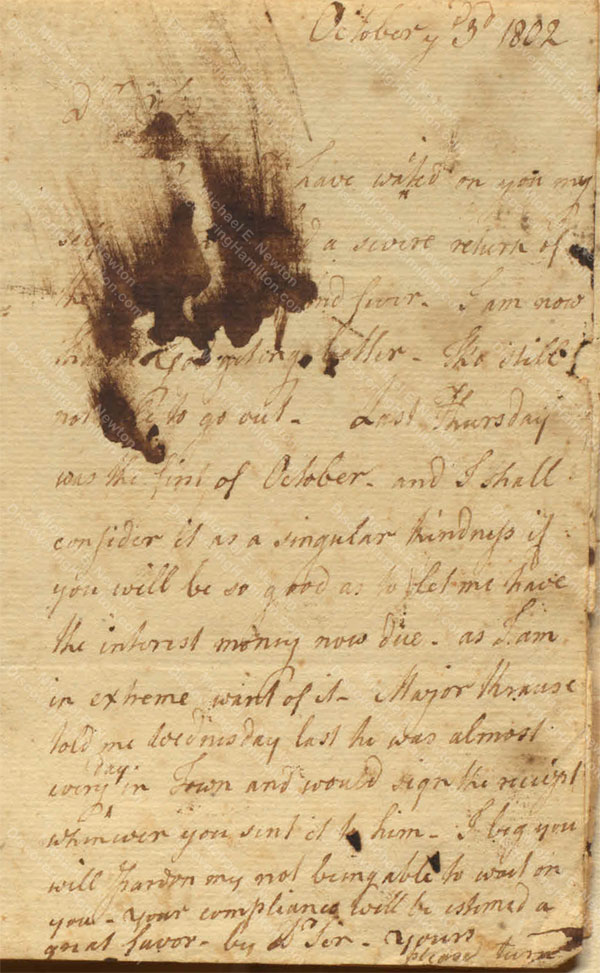 October y 3d 1802
D
have waited on you my
self a severe return of
the and fever. I am now
getting better - tho still
not to go out - Last Thursday
was the first of October - and I shall
consider it as a singular kindness if
you will be so good as to let me have
the interest money now due - as I am
in extreme want of it - Major Krause
told me Wednesday last he was almost
every day in Town and would sign the receipt
whenever you sent it to him - I beg you
will pardon my not being able to wait on
you - your compliance will be esteemed a
great favor - by Dr Sir - yours
please turn